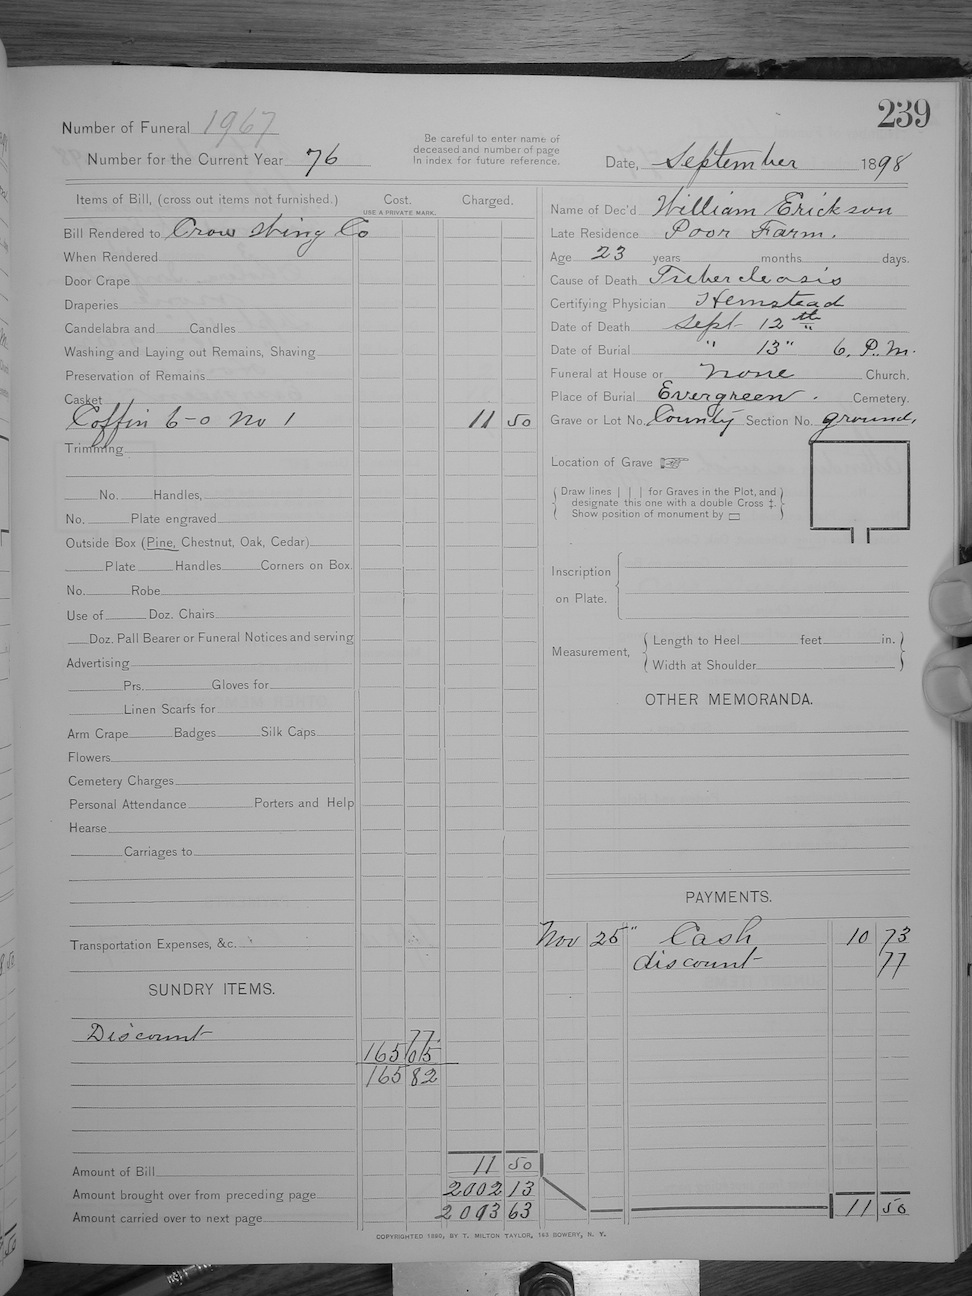 239
Number of Funeral 1967
Number for the Current Year 76
Be careful to enter name of
deceased and number of page
In index for future reference.
Date, September 1898
Items of Bill, (cross out items not furnished.) Cost. Charged.
USE A PRIVATE MARK.
Bill Rendered to Crow Wing Co
When Rendered
Door Crape
Draperies
Candelabra and Candles
Washing and Laying out Remains, Shaving
Preservation of Remains
Casket
Coffin 6-0 No 1 11 50
Trimming
No. Handles,
No. Plate engraved
Outside Box (Pine, Chestnut, Oak, Cedar)
Plate Handles Corners on Box.
No. Robe
Use of Doz. Chairs
Doz. Pall Bearer or Funeral Notices and serving
Advertising
Prs. Gloves for
Linen Scarfs for
Arm Crape Badges Silk Caps
Flowers
Cemetery Charges
Personal Attendance Porters and Help
Hearse
Carriages to
Transportation Expenses, &c.
SUNDRY ITEMS.
Discount 77
165 05
165 82
Amount of Bill 11 50
Amount brought over from preceding page 2002 13
Amount carried over to next page 2093 63
Name of Dec'd William Erickson
Late Residence Poor Farm.
Age 23 years months days.
Cause of Death Tubercleosis
Certifying Physician Hemstead
Date of Death Sept 12th
Date of Burial " 13" 6. P.M.
Funeral at House or none Church.
Place of Burial Evergreen. Cemetery.
Grave or Lot No. County Section No. ground.
Location of Grave ☞
Draw lines | | | for Graves in the Plot, and
designate this one with a double Cross ‡.
Show position of monument by ▭
Inscription
on Plate.
Measurement, Length to Heel feet in.
Width at Shoulder
OTHER MEMORANDA.
PAYMENTS.
Nov 25" Cash 10 73
discount 77
11 50
COPYRIGHTED 1890, BY T. MILTON TAYLOR, 163 BOWERY, N. Y.